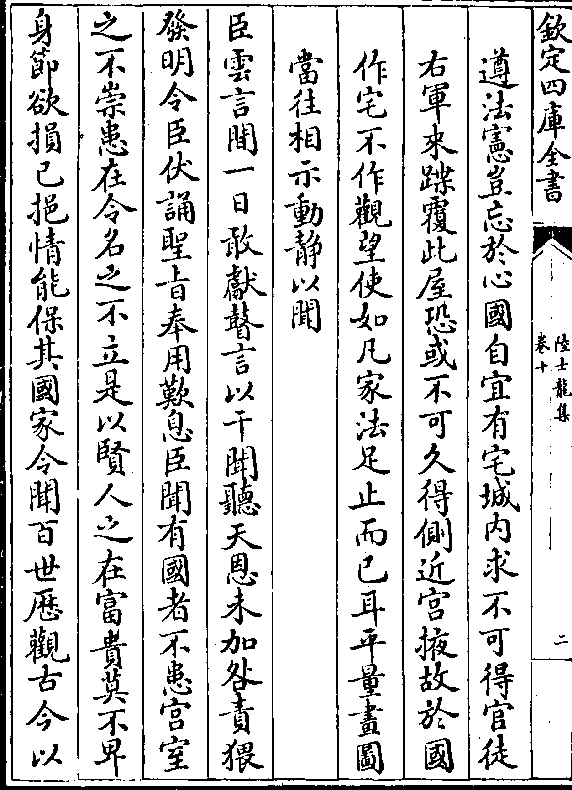 欽定四庫全書
陸士龍集
卷十
二
遵法憲豈忘於心國自宜有宅城内求不可得官徒
右軍來蹀覆此屋恐或不可久得側近宮掖故於國
作宅不作觀望使如凡家法足止而已耳平量畫圖
當往相示動静以聞
臣雲言閒一日敢獻瞽言以干聞聽天恩未加咎責猥
發明令臣伏誦聖旨奉用歎息臣聞有國者不患宮室
之不崇患在令名之不立是以賢人之在富貴莫不卑
身節欲損已挹情能保其國家令聞百世厯觀古今以